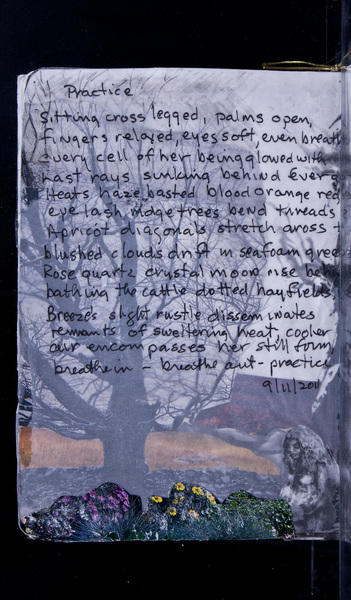 Practice
Sitting cross legged, palms open,
fingers relaxed, eyes soft, even breath
every cell of her being glowed with
Last rays sinking behind Everg
Heats haze basted blood orange red
eye lash ridge trees bend threads
Apricot diagonals stretch aross t
blushed clouds drift in seafoam gree
Rose quartz crystal moon rise behi
bathing the cattle dotted hayfields,
Breezes slight rustle disseminates
remnants of sweltering heat, cooler
air encompasses her still form
breathe in - breathe out - practice
9/11/201